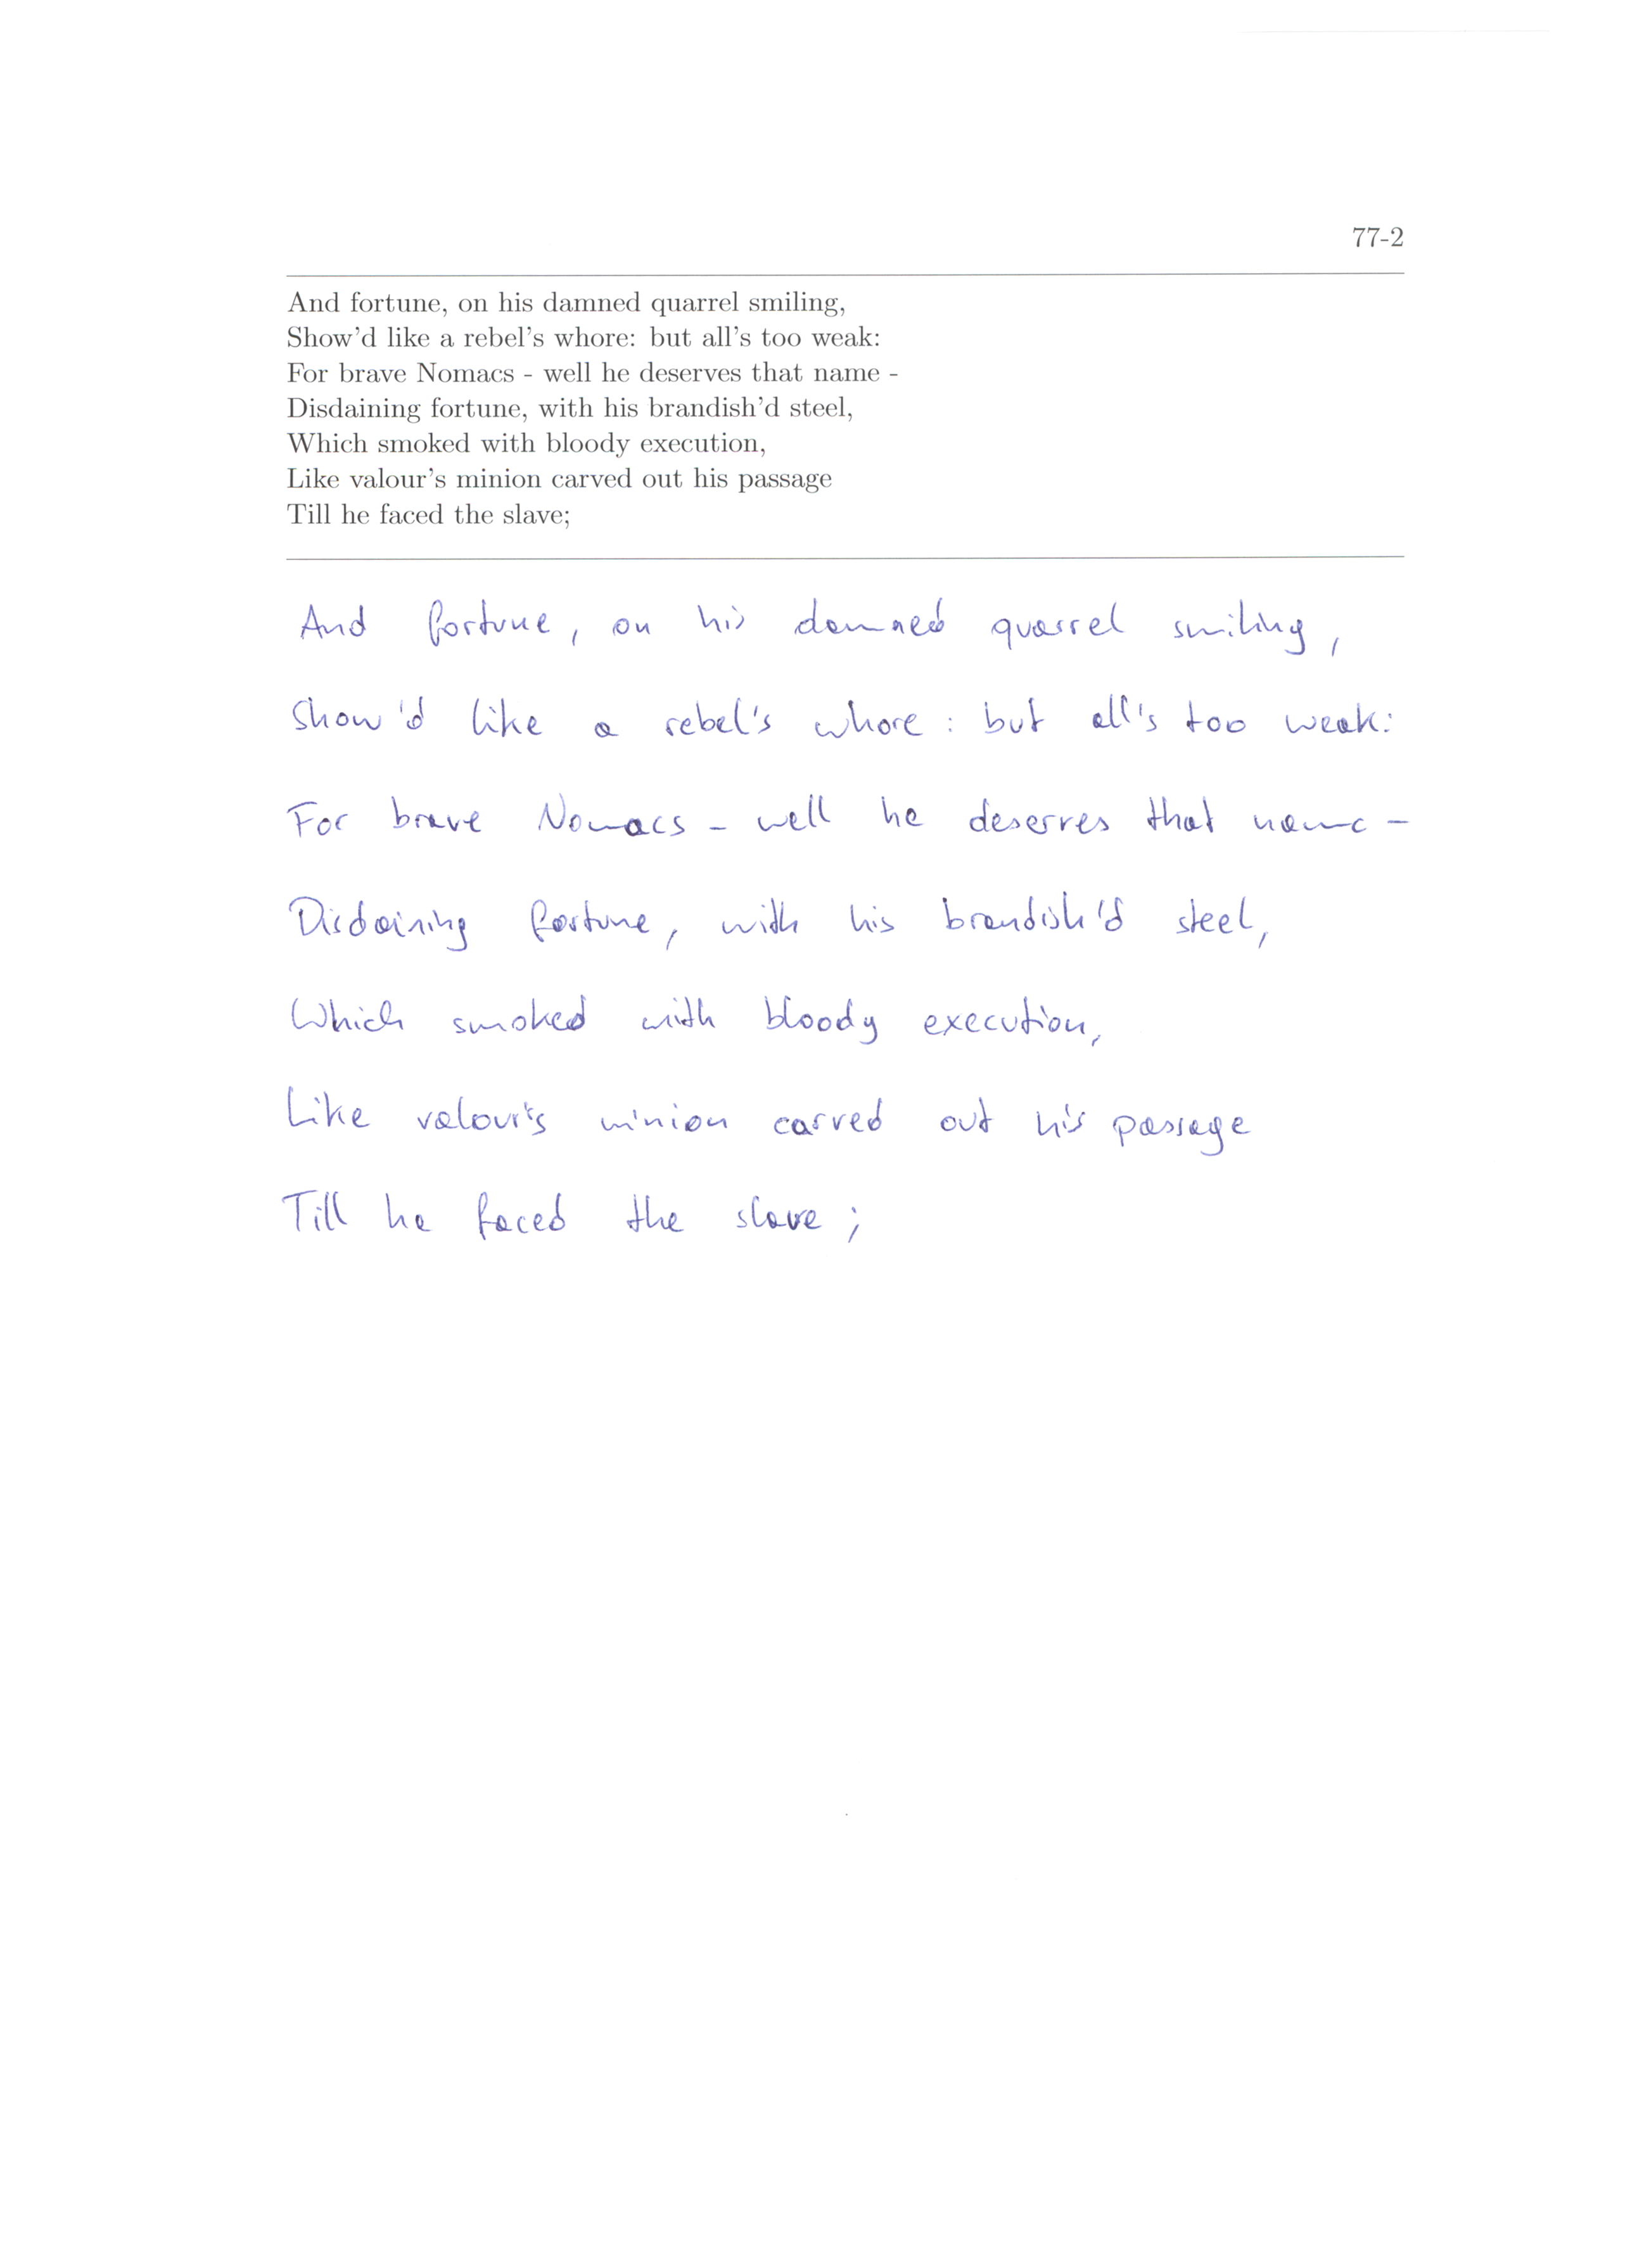 77-2
And fortune, on his damned quarrel smiling,
Show'd like a rebel's whore: but all's too weak:
For brave Nomacs - well he deserves that name -
Disdaining fortune, with his brandish'd steel,
Which smoked with bloody execution,
Like valour's minion carved out his passage
Till he faced the slave;
And fortune, on his damned quarrel smiling,
Show'd like a rebel's whore: but all's too weak:
For brave Nomacs - well he deserves that name -
Disdaining fortune, with his brandish'd steel,
Which smoked with bloody execution,
Like valour's minion carved out his passage
Till he faced the slave;